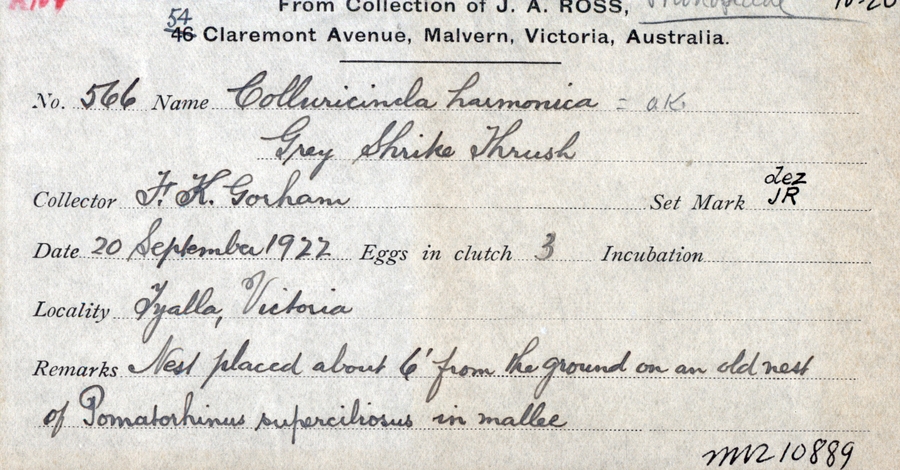 From Collection of J. A. ROSS,
54
46 Claremont Avenue, Malvern, Victoria, Australia.
No. 566 Name Colluricincla harmonica = ok.
Grey Shrike Thrush
Collector F. K. Gorham Set Mark JR
Date 20 September 1922 Eggs in clutch 3 Incubation
Locality Tyalla, Victoria
Remarks Nest placed about 6' from the ground on an old nest
of Pomatorhinus superciliosus in mallee
10889